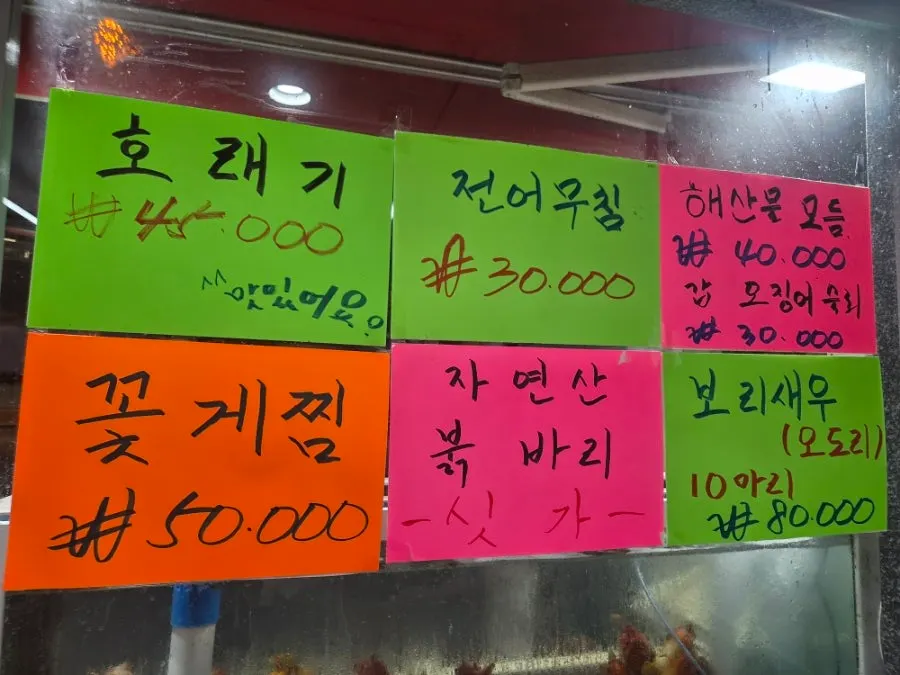 호래기
₩ 45.000
맛있어요
전어무침
₩ 30.000
해산물 모듬
₩ 40.000
갑 오징어 숙회
₩ 30.000
꽃게찜
₩ 50.000
자연산
붉바리
-싯가-
보리새우
(오도리)
10마리
₩ 80.000